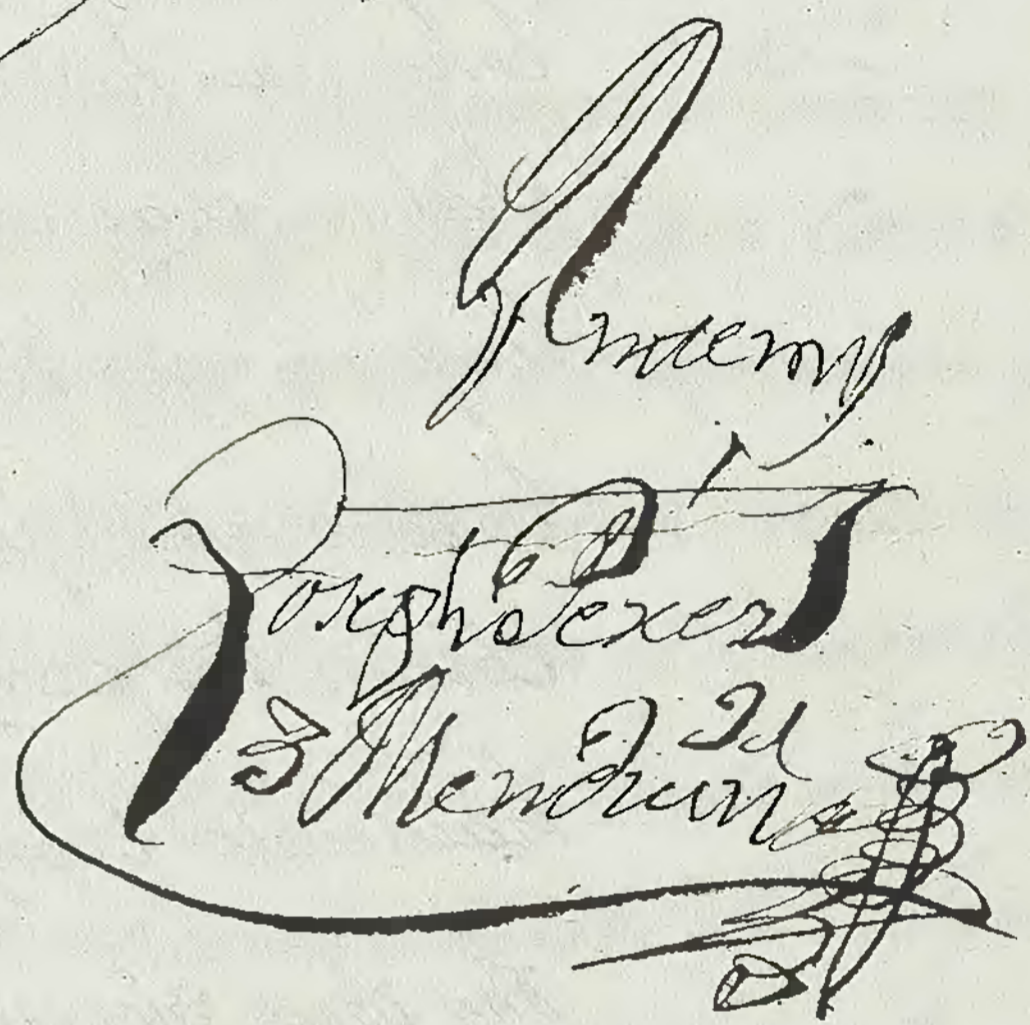 Ante my
Joseph Perez
de Mendiuna